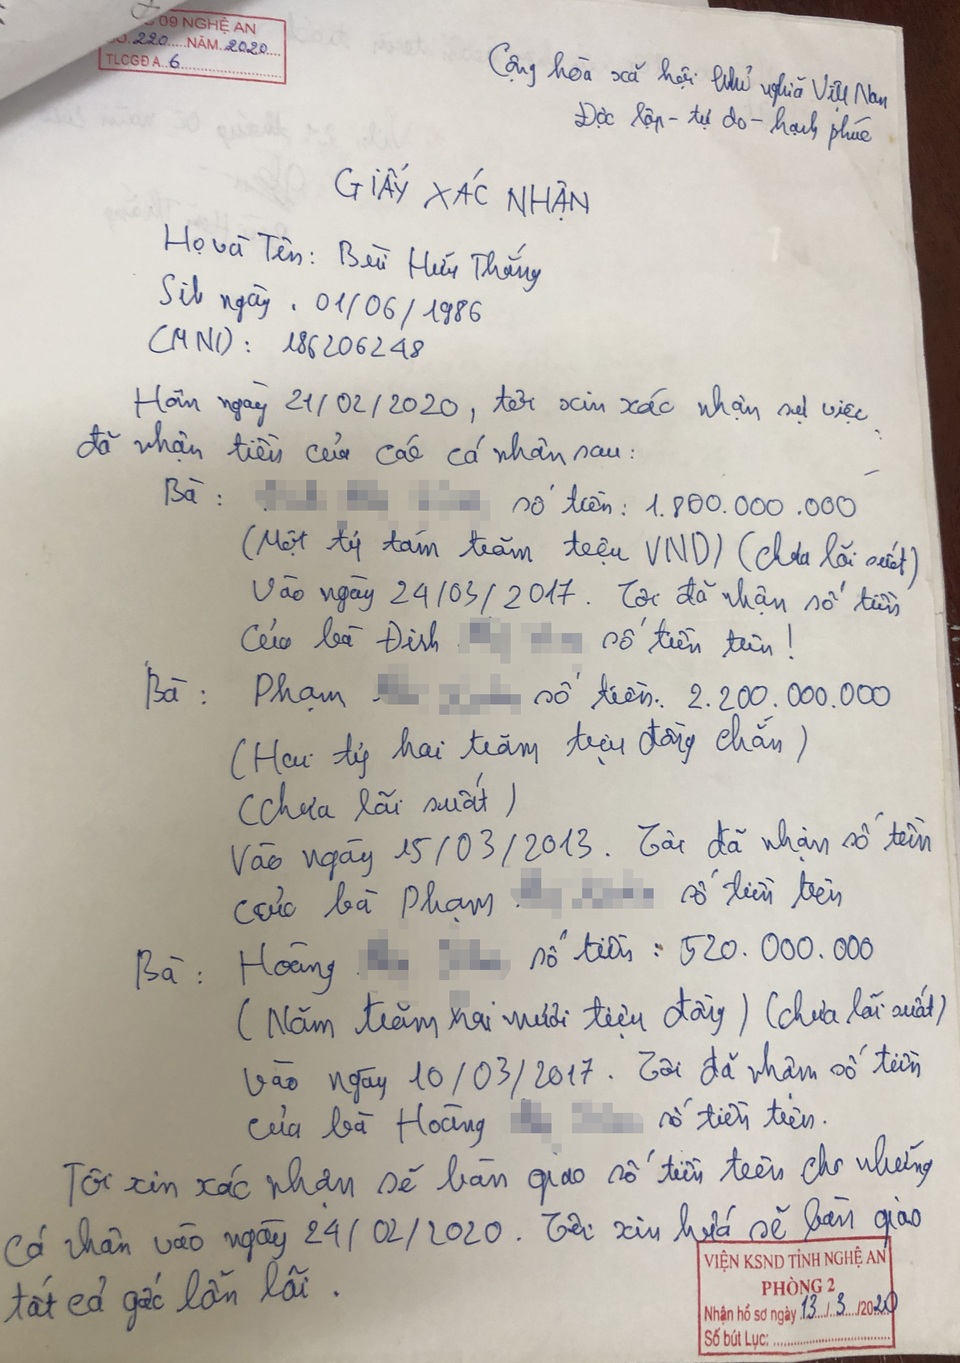 09 NGHỆ AN
SỐ: 220 NĂM. 2020
TLCGĐ A. 6
Cộng hòa xã hội chủ nghĩa Việt Nam
Độc lập - tự do - hạnh phúc
GIẤY XÁC NHẬN
Họ và Tên: Bùi Hữu Thắng
Sinh ngày. 01/06/1986
CMND: 186206248
Hôm ngày 21/02/2020, tôi xin xác nhận sự việc
đã nhận tiền của các cá nhân sau:
Bà: số tiền: 1.800.000.000
(Một tỷ tám trăm triệu VND) (chưa lãi suất)
Vào ngày 24/03/2017. Tôi đã nhận số tiền
của bà Đinh số tiền trên!
Bà: Phạm số tiền. 2.200.000.000
(Hai tỷ hai trăm triệu đồng chẵn)
(chưa lãi suất)
Vào ngày 15/03/2013. Tôi đã nhận số tiền
của bà Phạm số tiền trên
Bà: Hoàng số tiền: 520.000.000
(Năm trăm hai mươi triệu đồng) (chưa lãi suất)
vào ngày 10/03/2017. Tôi đã nhận số tiền
của bà Hoàng số tiền trên.
Tôi xin xác nhận sẽ bàn giao số tiền trên cho những
cá nhân vào ngày 24/02/2020. Tôi xin hứa sẽ bàn giao
tất cả gốc lẫn lãi.
VIỆN KSND TỈNH NGHỆ AN
PHÒNG 2
Nhận hồ sơ ngày 13/3/2020
Số bút Lục: